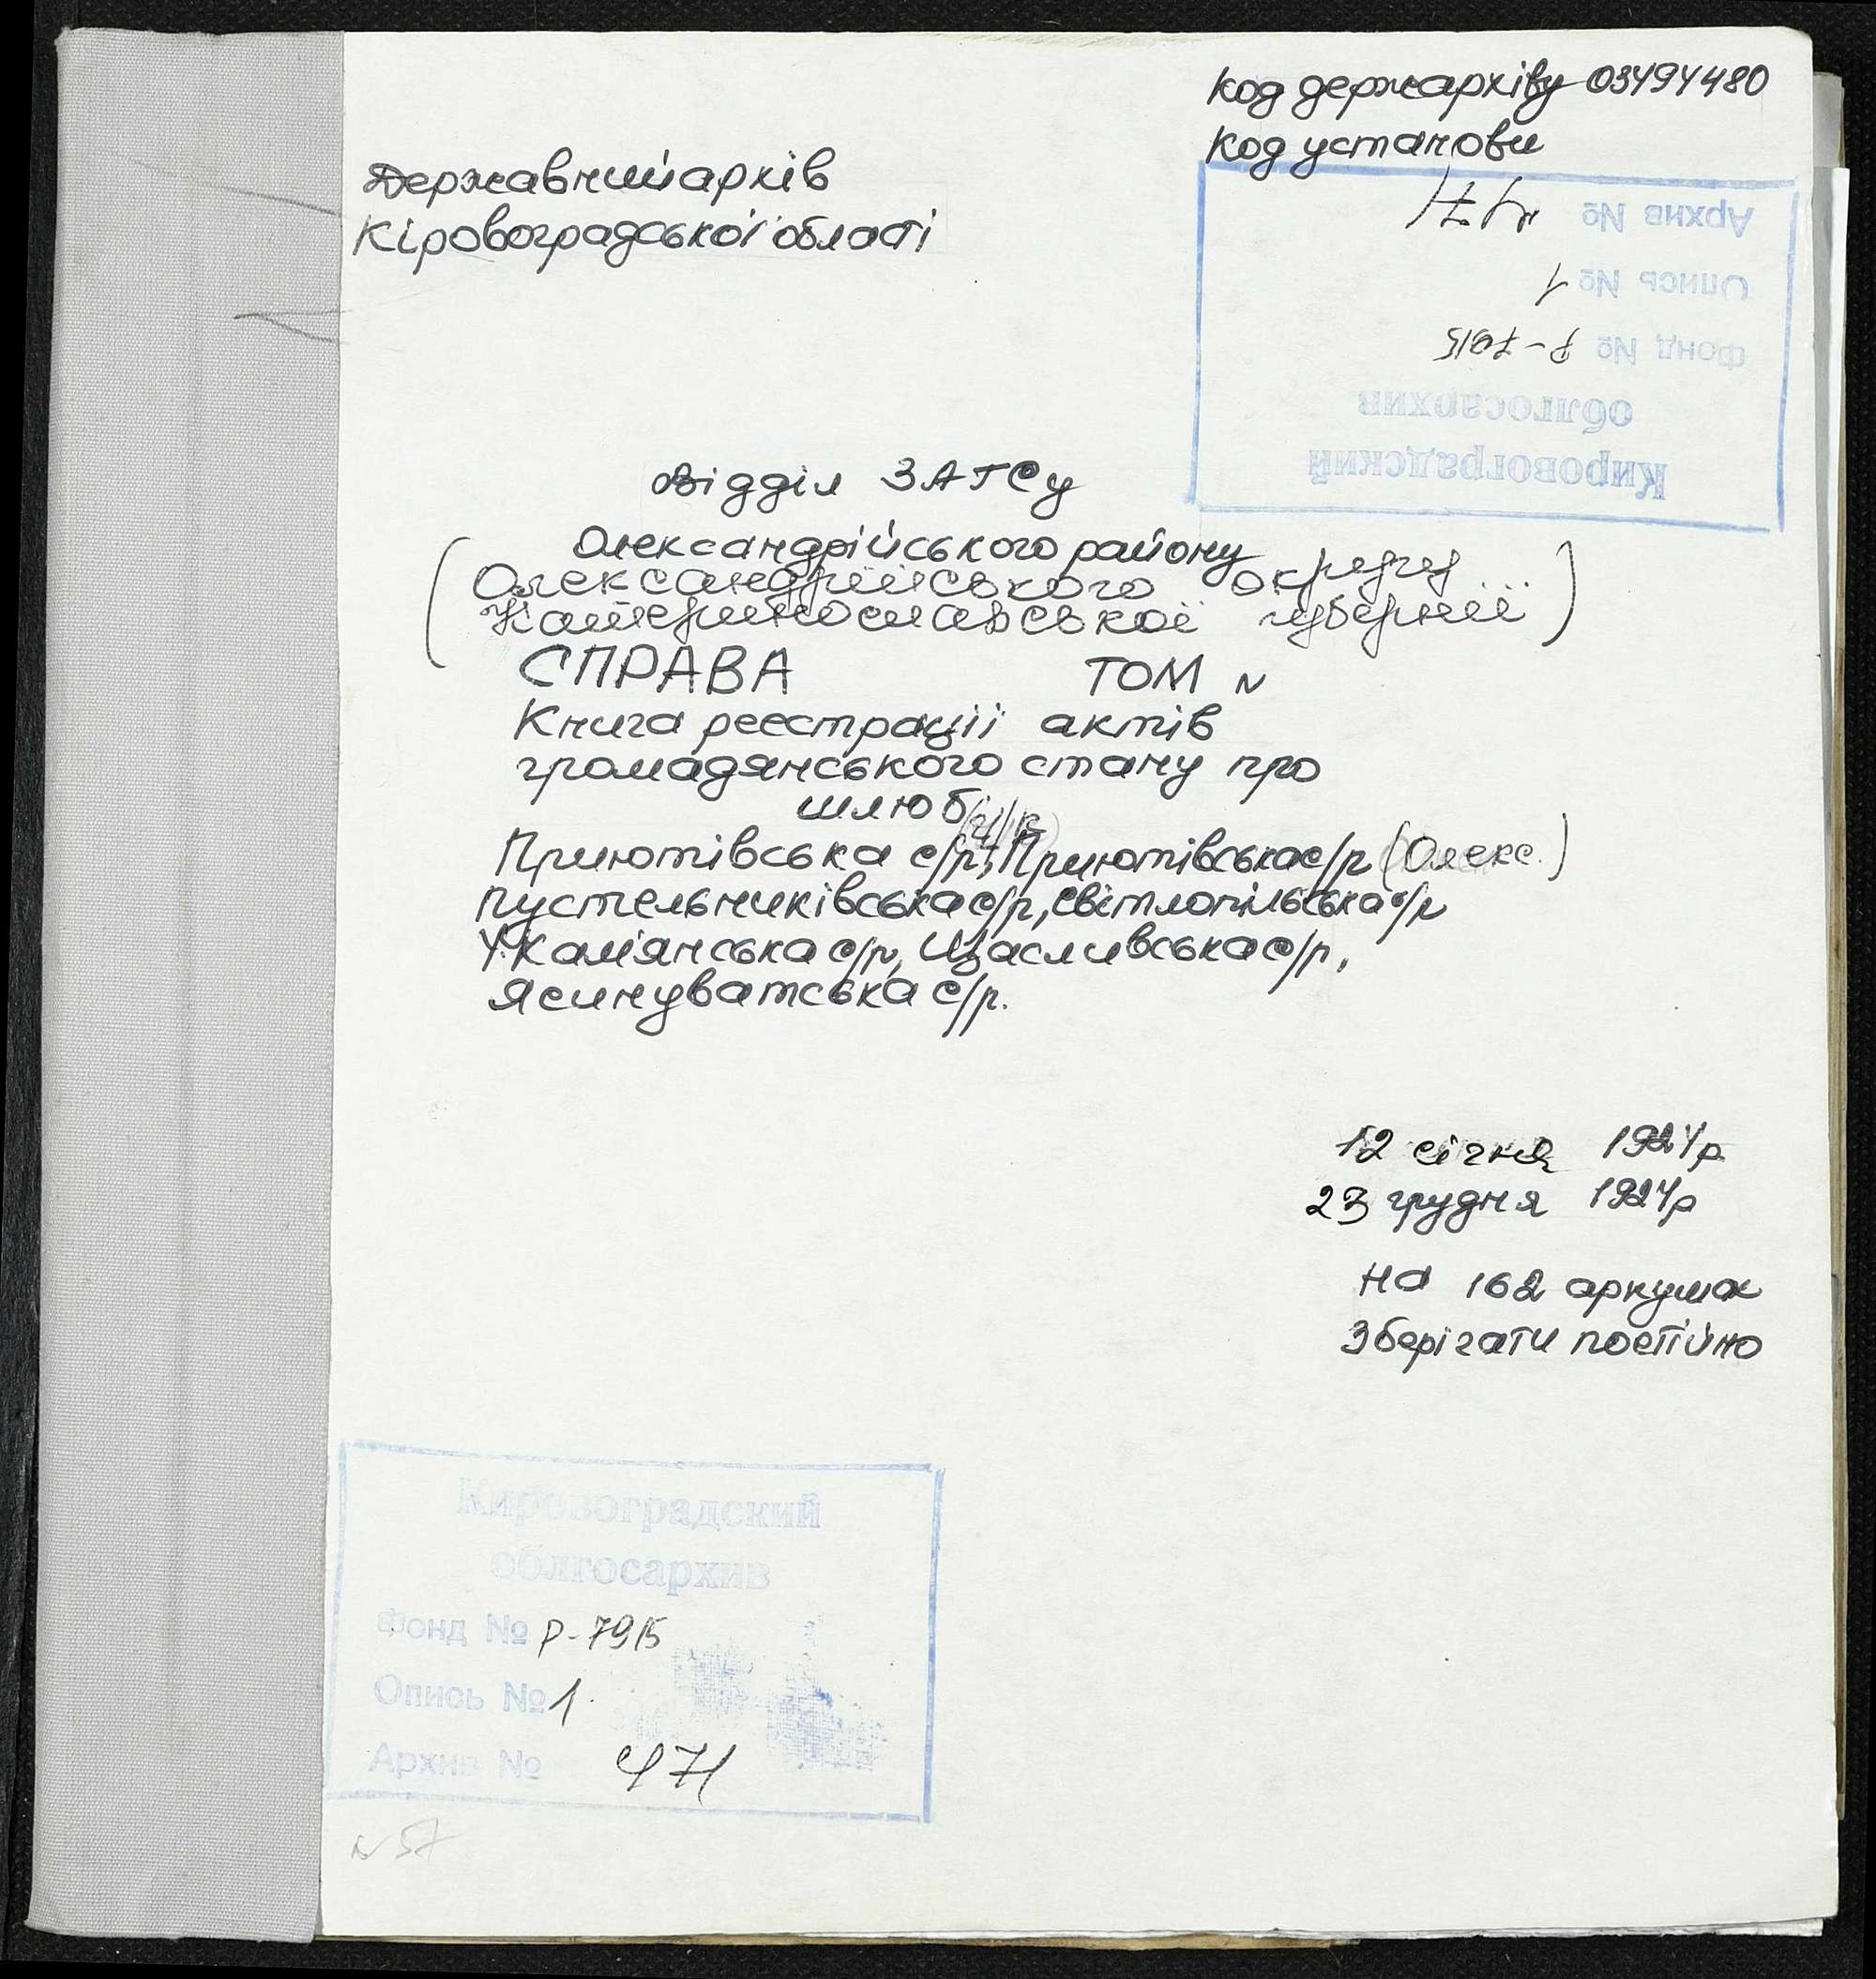 Код держархіву 03494480
Код установи
Державний архів
Кіровоградської області
Кировоградский
облгосархив
Фонд № Р-7915
Опись № 1
Архив № 471
Відділ ЗАГСу
Олександрійського району
(Олександрійського округу
Катеринославської губернії)
СПРАВА ТОМ N
Книга реєстрації актів
громадянського стану про
шлюб
Приютівська с/р, Приютівська с/р (Олекс.)
Пустельниківська с/р, Світлопільська с/р
У.Кам'янська с/р, Щасливська с/р,
Ясинуватська с/р.
12 січня 1924р
23 грудня 1924р
на 162 аркушах
Зберігати постійно
Кировоградский
облгосархив
Фонд № Р-7915
Опись № 1.
Архив № 471
N 57